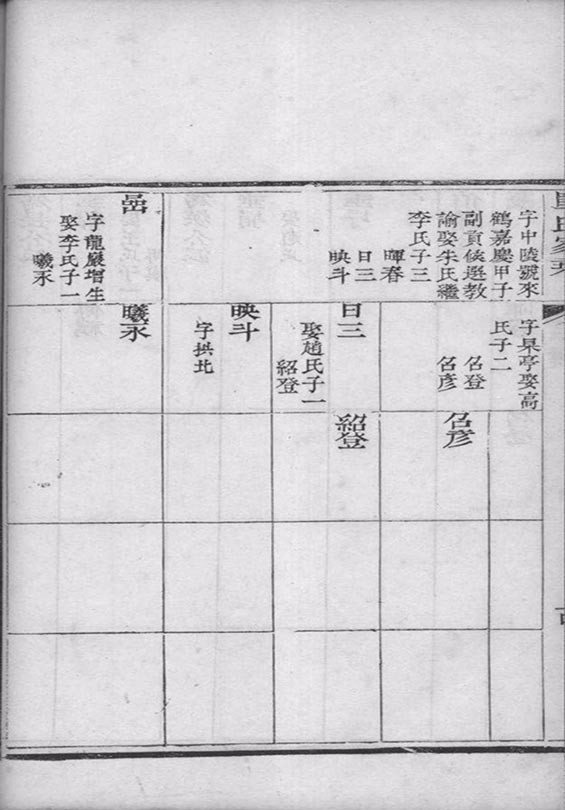 字中陵號來
鶴嘉慶甲子
副貢候選教
諭娶朱氏繼
李氏子三
暉春
日三
映斗
嵒
字龍巖增生
娶李氏子一
曦永
字杲亭娶高
氏子二
名登
名彥
日三
娶趙氏子一
紹登
映斗
字拱北
曦永
名彥
紹登